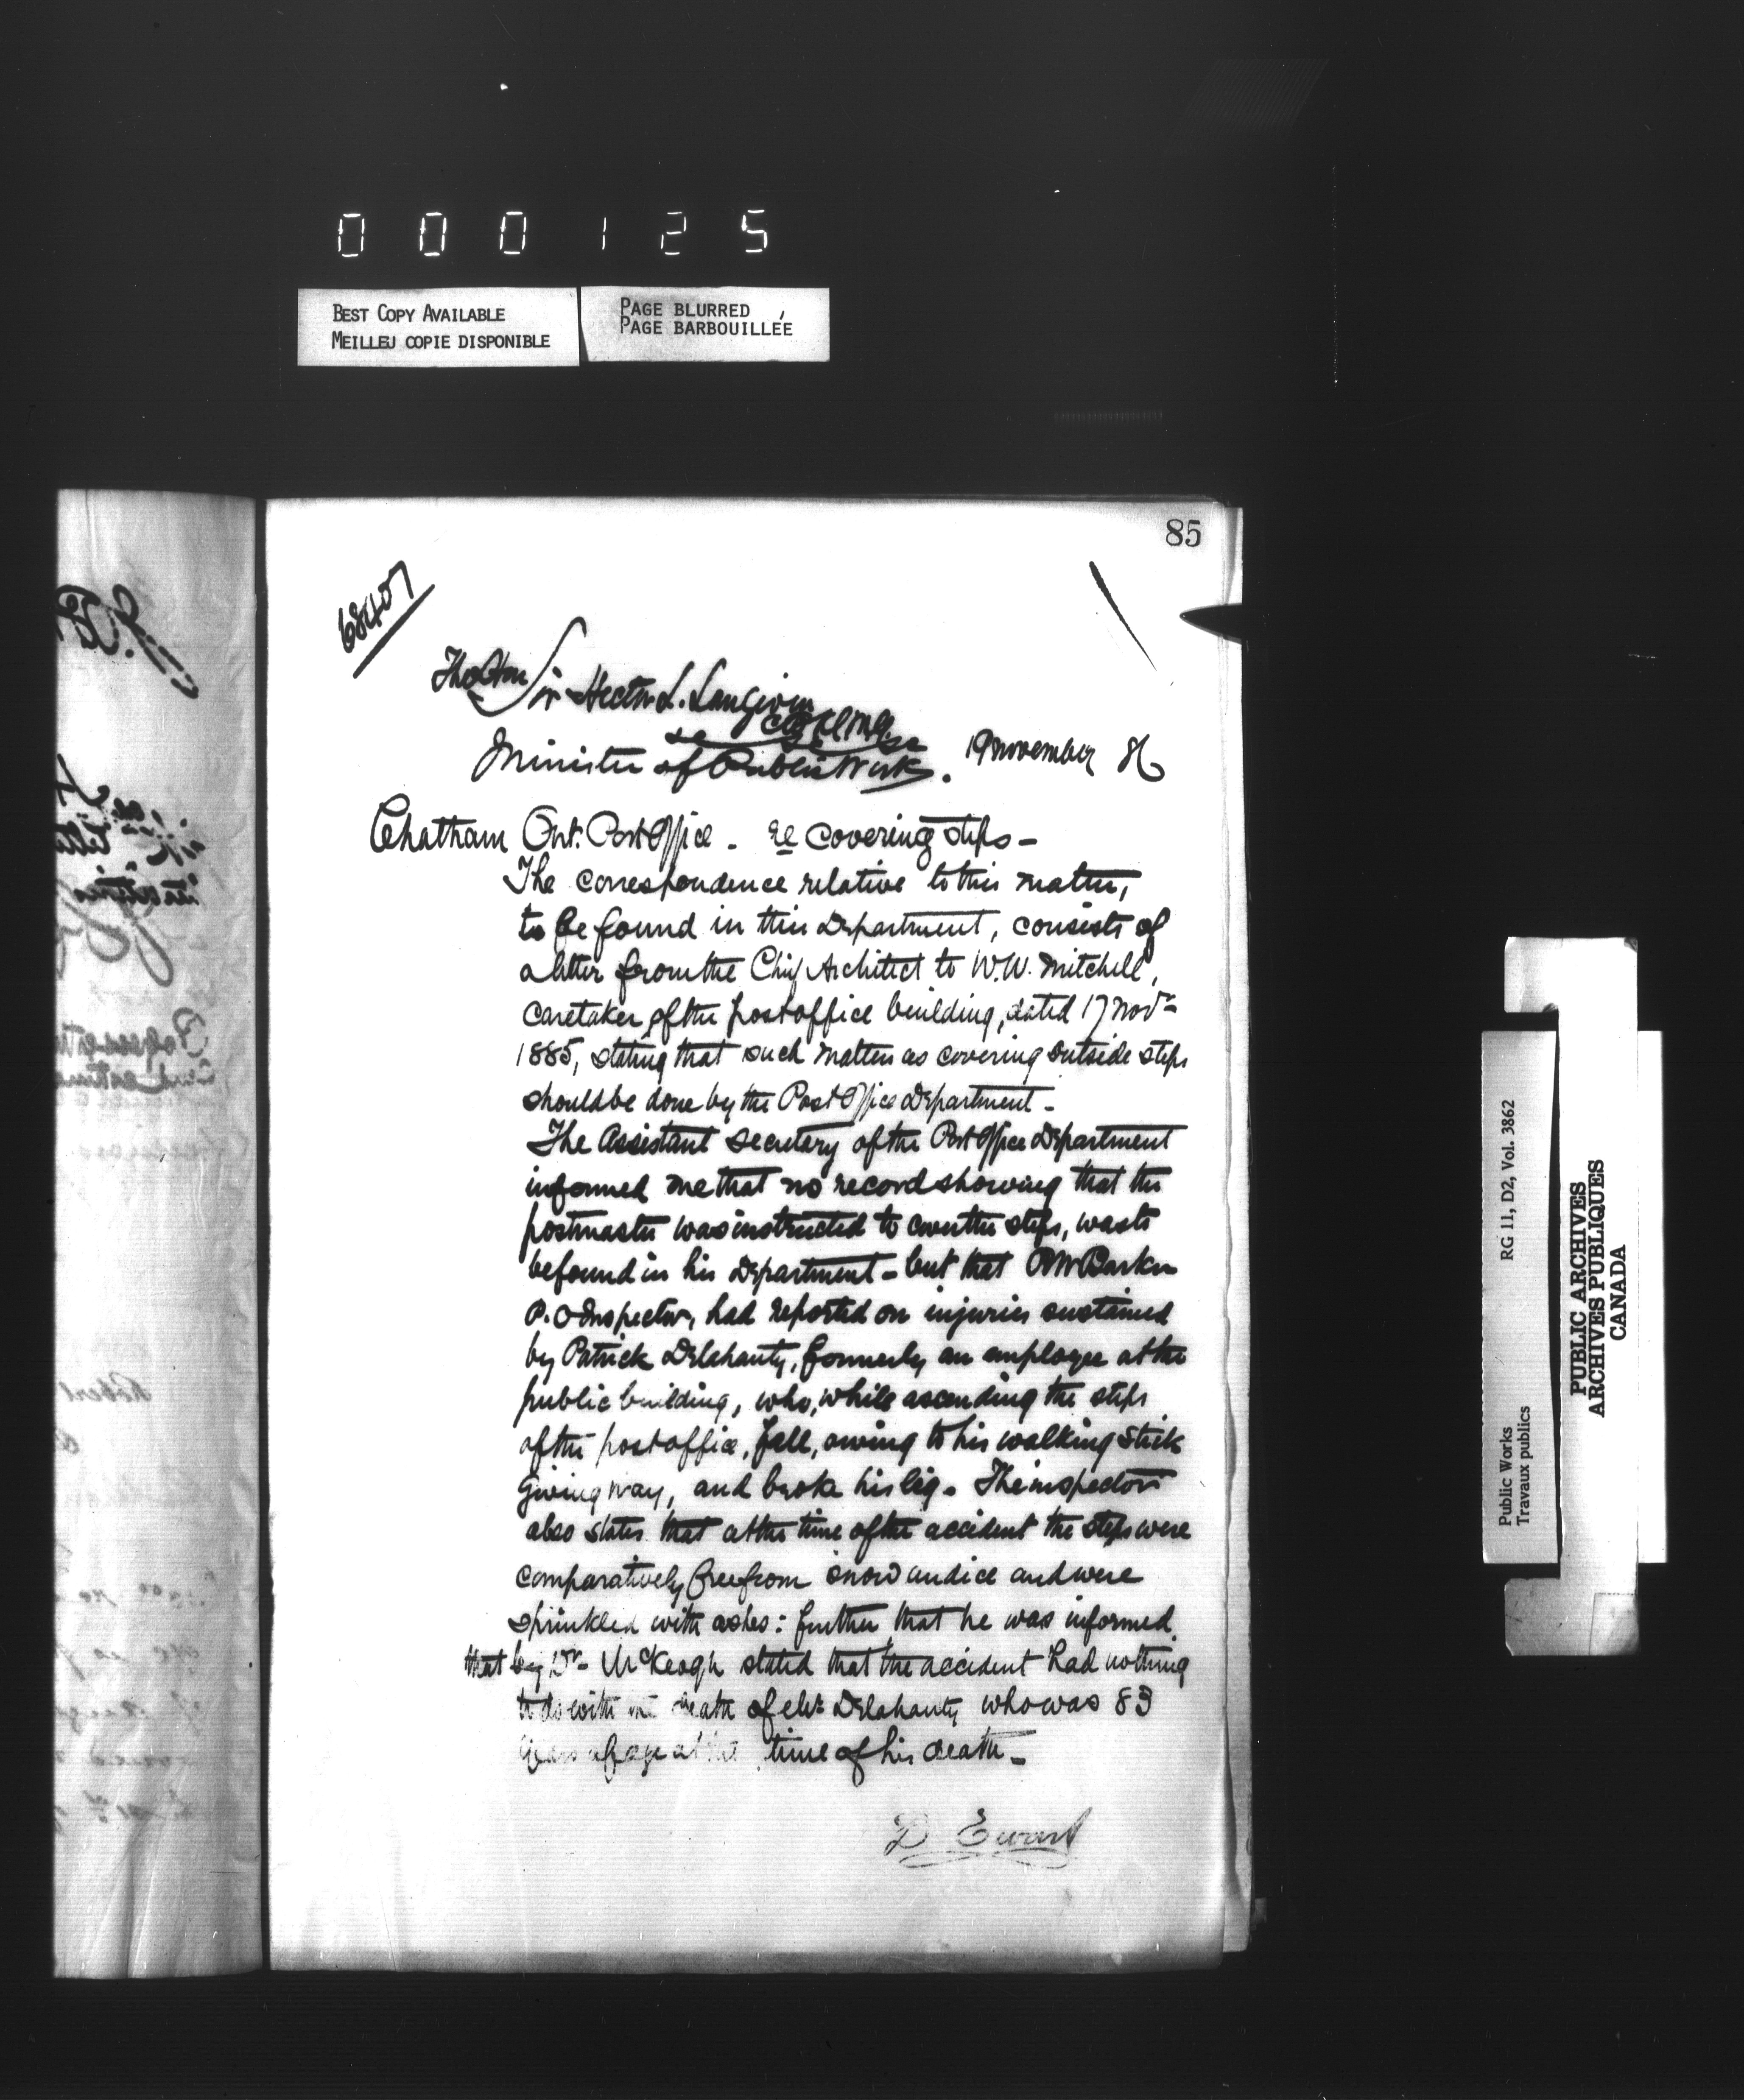 000125
BEST COPY AVAILABLE
MEILLEU COPIE DISPONIBLE
PAGE BLURRED
PAGE BARBOUILLÉE
85
68407
The Hon Sir Hector L. Langevin
CB KCMG
&c &c &c
Minister of Public Works.
19 November 86
Chatham Ont. Post Office - re covering steps -
The correspondence relative to this matter,
to be found in this Department, consists of
a letter from the Chief Architect to W.W. Mitchell,
caretaker of the post office building, dated 17 Novr
1885, stating that such matters as covering outside steps
should be done by the Post Office Department -
The Assistant Secretary of the Post Office Department
informed me that no record showing that the
postmaster was instructed to cover the steps, was to
be found in his Department - but that R W Barker
P.O Inspector, had reported on injuries sustained
by Patrick Delahanty, formerly an employee at the
public building, who, while ascending the steps
of the post office, fell, owing to his walking stick
giving way, and broke his leg - The inspector
also states that at the time of the accident the steps were
comparatively free from snow and ice and were
sprinkled with ashes: further that he was informed
that by Dr McKeogh stated that the accident had nothing
to do with the death of Mr Delahanty who was 83
years of age at the time of his death -
D Ewart
RG 11, D2, Vol. 3862
Public Works
Travaux publics
PUBLIC ARCHIVES
ARCHIVES PUBLIQUES
CANADA